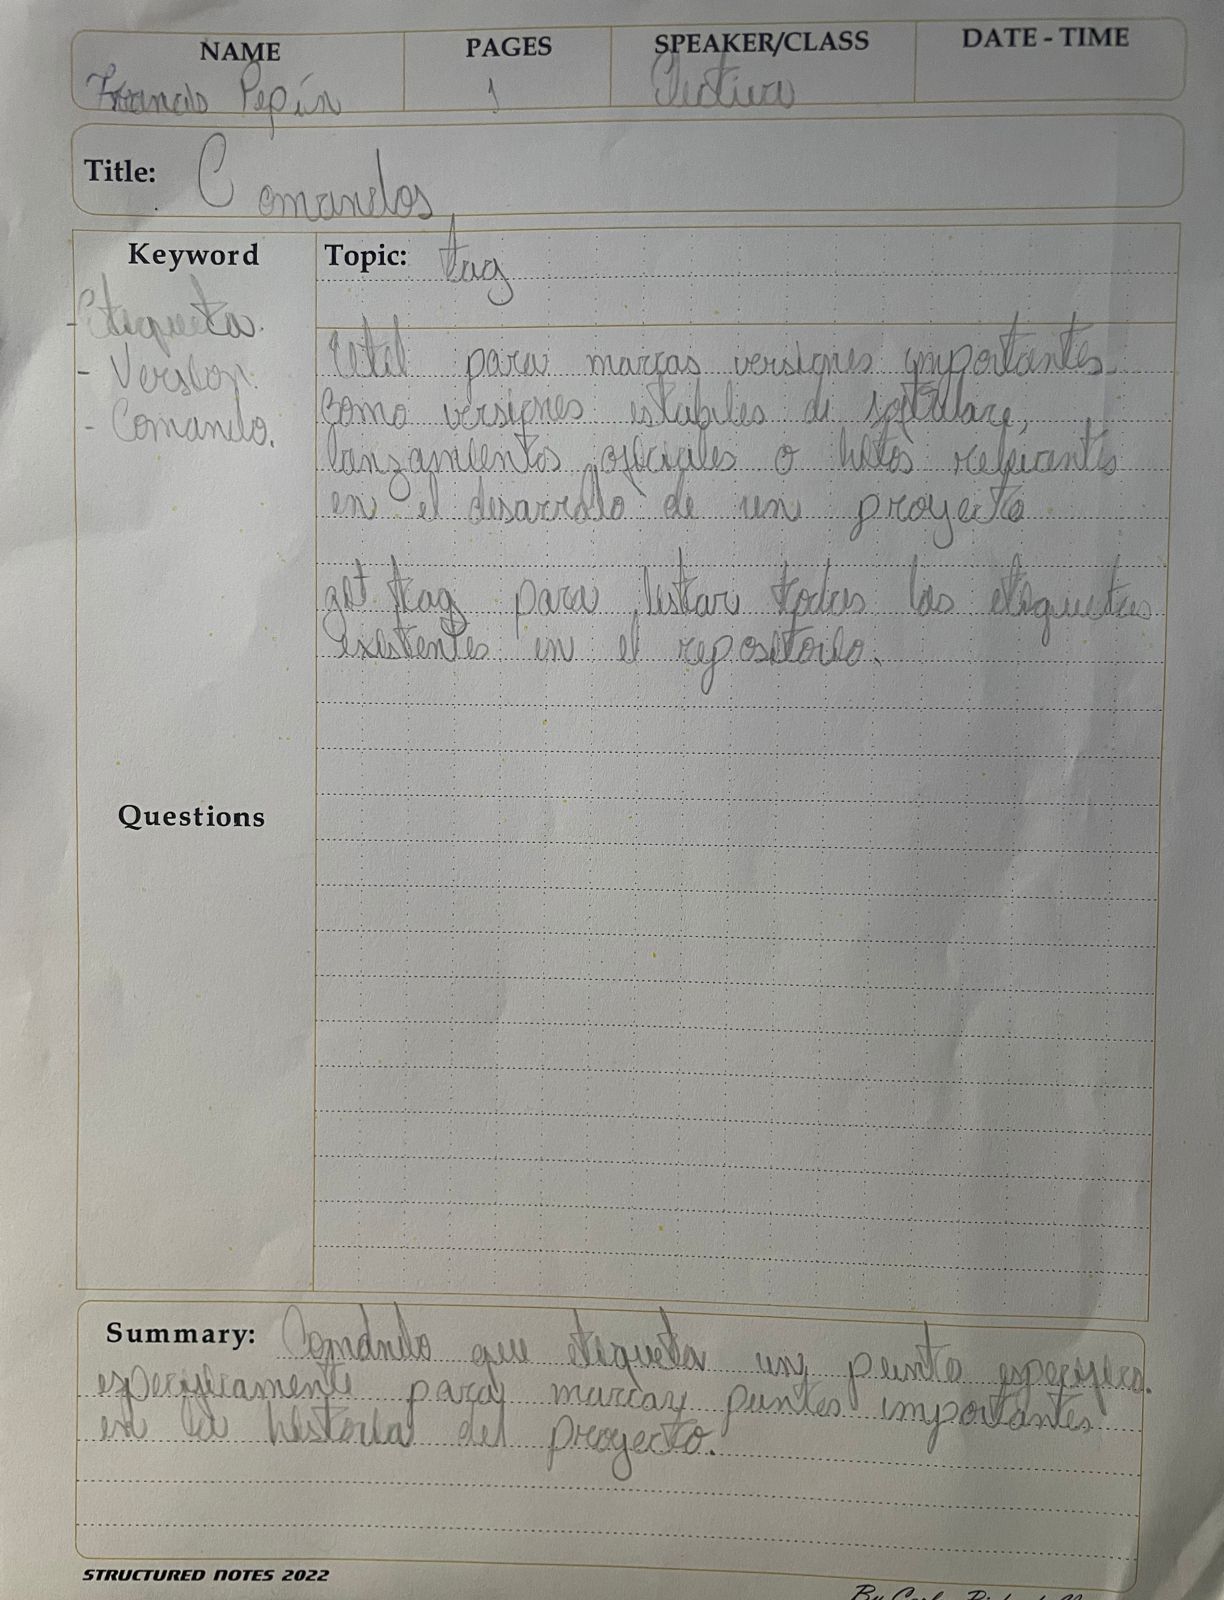 NAME PAGES SPEAKER/CLASS DATE - TIME
Francis Pepín 1 Electiva
Title: Comandos
Keyword
- Etiqueta.
- Version.
- Comando.
Topic: tag
para marcas versiones importantes.
Como versiones estables de software,
lanzamientos oficiales o hitos relevants
en el desarrollo de un proyecto
git tag para listar todas las etiquetas
existentes en el repositorio.
Questions
Summary: Comando que etiqueta un punto especifico.
especificamente para marcar puntos importantes
en la historia del proyecto.
STRUCTURED NOTES 2022